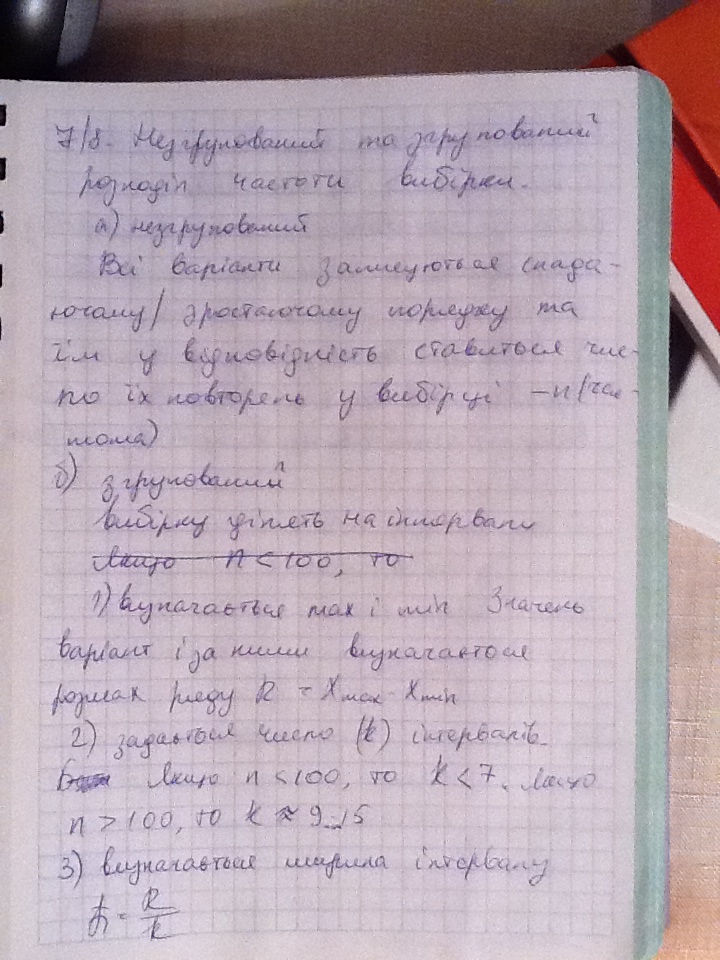 7/8. Незгрупований та згрупований
розподіл частоти вибірки.
а) незгрупований
Всі варіанти записуються спада-
ючому/зростаючому порядку та
їм у відповідність ставиться чис-
ло їх повторень у вибірці – n (час-
тота)
б) Згрупований
вибірку ділять на інтервали
Якщо n < 100, то
1) визначається max і min значень
варіант і за ними визначається
розмах ряду R = Xmax - Xmin
2) задається число (k) інтервалів.
Якщо n < 100, то k < 7, якщо
n > 100, то k ≈ 9-15
3) визначається ширина інтервалу
h = R/k